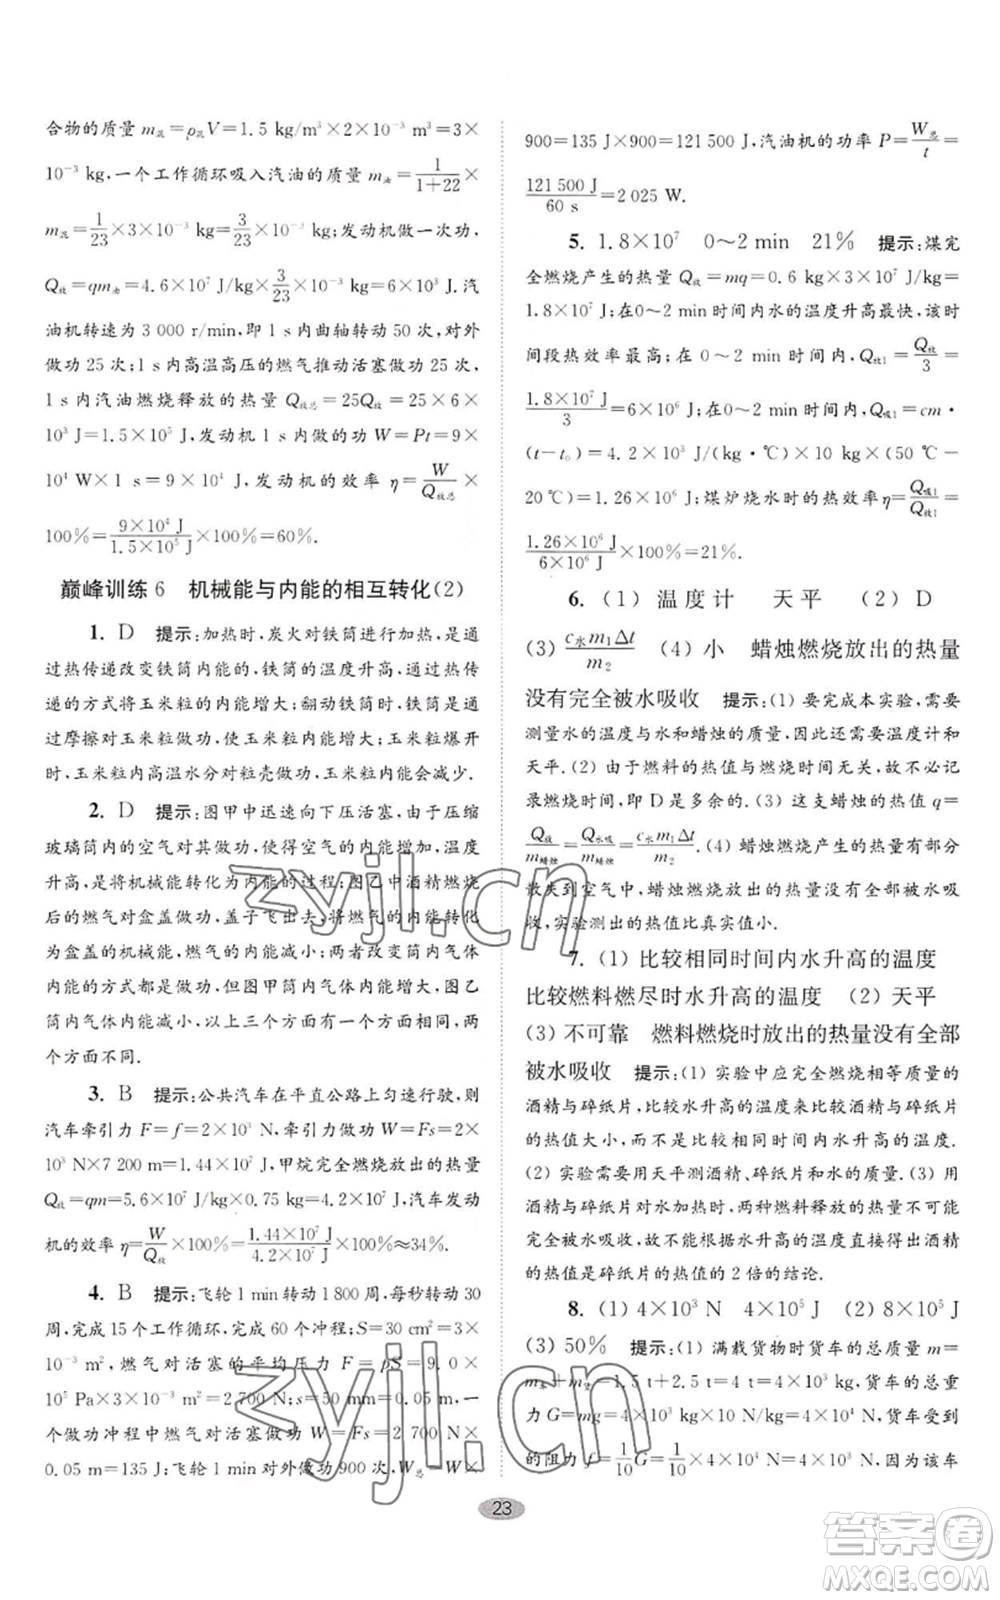 合物的质量 m混=ρ混V=1.5 kg/m³×2×10⁻³ m³=3×
10⁻³ kg,一个工作循环吸入汽油的质量 m油=1/(1+22)×
m混=1/23×3×10⁻³ kg=3/23×10⁻³ kg;发动机做一次功,
Q放=qm油=4.6×10⁷ J/kg×3/23×10⁻³ kg=6×10³ J.汽
油机转速为 3 000 r/min,即 1 s内曲轴转动 50 次,对外
做功 25 次;1 s内高温高压的燃气推动活塞做功 25 次,
1 s内汽油燃烧释放的热量 Q放总=25Q放=25×6×
10³ J=1.5×10⁵ J,发动机 1 s内做的功 W=Pt=9×
10⁴ W×1 s=9×10⁴ J,发动机的效率 η=W/Q放总×
100%=(9×10⁴ J)/(1.5×10⁵ J)×100%=60%.
巅峰训练 6 机械能与内能的相互转化(2)
1. D 提示:加热时,炭火对铁筒进行加热,是通
过热传递改变铁筒内能的,铁筒的温度升高,通过热
传递的方式将玉米粒的内能增大;翻动铁筒时,铁筒是通
过摩擦对玉米粒做功,使玉米粒内能增大;玉米粒爆开
时,玉米粒内高温水分对粒壳做功,玉米粒内能会减少.
2. D 提示:图甲中迅速向下压活塞,由于压缩
玻璃筒内的空气对其做功,使得空气的内能增大,温度
升高,是将机械能转化为内能的过程;图乙中酒精燃烧
后的燃气对盒盖做功,盖子飞出去,将燃气的内能转化
为盒盖的机械能,燃气的内能减小;两者改变筒内气体
内能的方式都是做功,但图甲筒内气体内能增大,图乙
筒内气体内能减小,以上三个方面有一个方面相同,两
个方面不同.
3. B 提示:公共汽车在平直公路上匀速行驶,则
汽车牵引力 F=f=2×10³ N,牵引力做功 W=Fs=2×
10³ N×7 200 m=1.44×10⁷ J,甲烷完全燃烧放出的热量
Q放=qm=5.6×10⁷ J/kg×0.75 kg=4.2×10⁷ J,汽车发动
机的效率 η=W/Q放×100%=(1.44×10⁷ J)/(4.2×10⁷ J)×100%≈34%.
4. B 提示:飞轮 1 min 转动 1 800 周,每秒转动 30
周,完成 15 个工作循环,完成 60 个冲程;S=30 cm²=3×
10⁻³ m²,燃气对活塞的平均压力 F=pS=9.0×
10⁵ Pa×3×10⁻³ m²=2 700 N;s=50 mm=0.05 m,一
个做功冲程中燃气对活塞做功 W=Fs=2 700 N×
0.05 m=135 J;飞轮 1 min 对外做功 900 次,W总=W×
900=135 J×900=121 500 J,汽油机的功率 P=W总/t=
121 500 J/60 s=2 025 W.
5. 1.8×10⁷ 0～2 min 21% 提示:煤完
全燃烧产生的热量 Q放=mq=0.6 kg×3×10⁷ J/kg=
1.8×10⁷ J;在0～2 min时间内水的温度升高最快,该时
间段热效率最高;在 0～2 min 时间内,Q放1=Q放/3=
(1.8×10⁷ J)/3=6×10⁶ J;在0～2 min时间内,Q吸1=cm·
(t−t₀)=4.2×10³ J/(kg·℃)×10 kg×(50 ℃−
20℃)=1.26×10⁶ J;煤炉烧水时的热效率η=Q吸1/Q放1=
(1.26×10⁶ J)/(6×10⁶ J)×100%=21%.
6. (1) 温度计 天平 (2) D
(3) c水m₁Δt/m₂ (4) 小 蜡烛燃烧放出的热量
没有完全被水吸收 提示:(1) 要完成本实验,需要
测量水的温度与水和蜡烛的质量,因此还需要温度计和
天平.(2) 由于燃料的热值与燃烧时间无关,故不必记
录燃烧时间,即 D 是多余的.(3) 这支蜡烛的热值 q=
Q放/m蜡烛=Q水吸/m蜡烛=c水m₁Δt/m₂.(4) 蜡烛燃烧产生的热量有部分
散失到空气中,蜡烛燃烧放出的热量没有全部被水吸
收,实验测出的热值比真实值小.
7. (1) 比较相同时间内水升高的温度
比较燃料燃尽时水升高的温度 (2) 天平
(3) 不可靠 燃料燃烧时放出的热量没有全部
被水吸收 提示:(1) 实验中应完全燃烧相等质量的
酒精与碎纸片,比较水升高的温度来比较酒精与碎纸片
的热值大小,而不是比较相同时间内水升高的温度.
(2) 实验需要用天平测酒精、碎纸片和水的质量.(3) 用
酒精与碎纸片对水加热时,两种燃料释放的热量不可能
完全被水吸收,故根据水升高的温度直接得出酒精
的热值是碎纸片的热值的 2 倍的结论.
8. (1) 4×10³ N 4×10⁵ J (2) 8×10⁵ J
(3) 50% 提示:(1) 满载货物时货车的总质量 m=
m车+m货=1.5 t+2.5 t=4 t=4×10³ kg,货车的总重
力 G=mg=4×10³ kg×10 N/kg=4×10⁴ N,货车受到
的阻力 f=1/10G=1/10×4×10⁴ N=4×10³ N,因为该车
23
zyjl.cn
zyjl.cn
答案圈
MXQE.COM